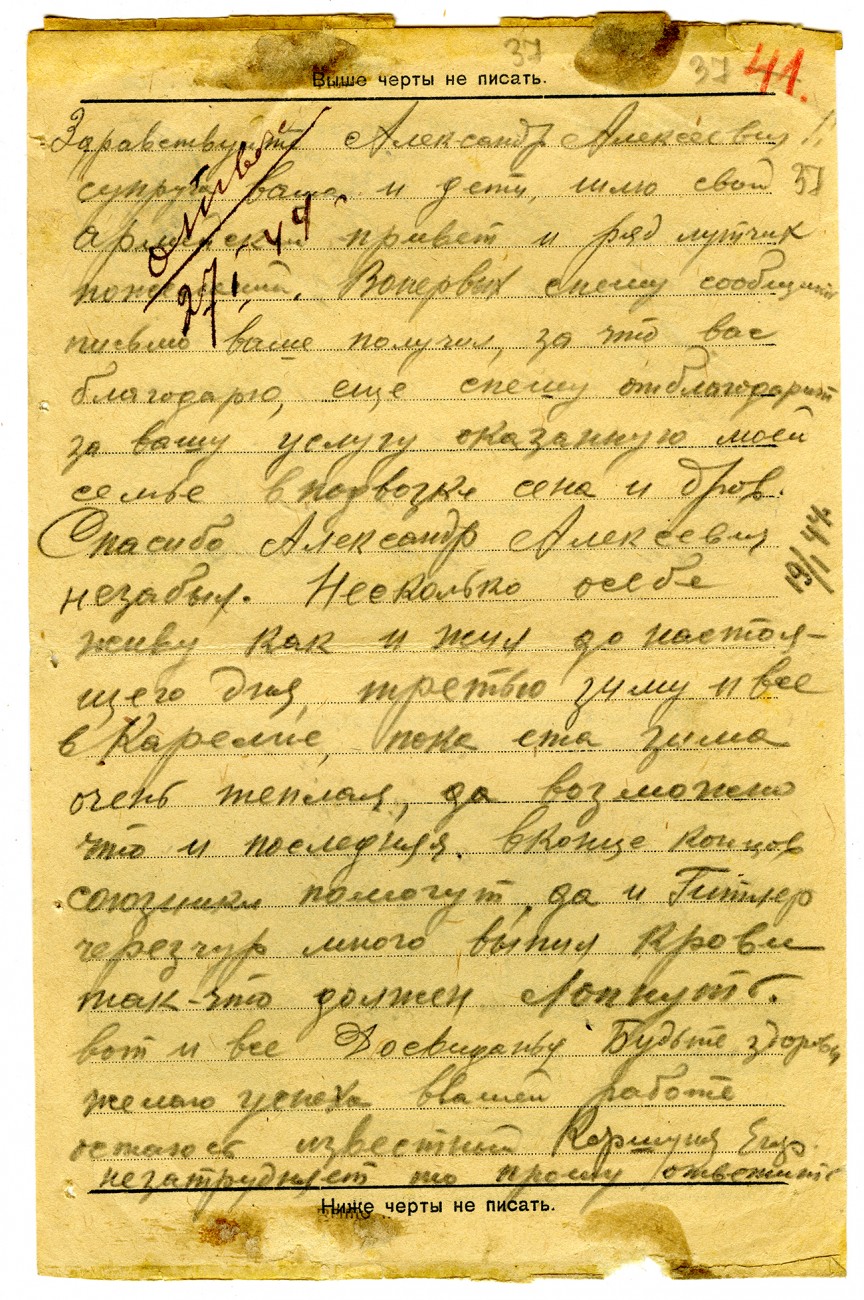 37
37 41.
Выше черты не писать.
Здравствуйте Александр Алексеевич!!
супруга ваша и дети, шлю свой 37
армейский привет и ряд лутчих
пожеланий. Вопервых спешу сообщить
письмо ваше получил, за что вас
благодарю, еще спешу отблагодарить
за вашу услугу оказанную моей
семье в подвозке сена и дров.
Спасибо Александр Алексеевич
незабыл. Несколько осебе
живу как и жил до настоя-
щего дня, третью зиму и все
в Карелие, пока ета зима
очень теплая, да возможно
что и последняя. вконце концов
союзники помогут, да и Гитлер
черезчур много выпил крови
так-что должен лопнуть.
вот и все Досвиданья Будьте здоровы
желаю успеха ввашей работе
остаюсь известний
незатрудняет то прошу ответить
Ниже черты не писать.
27/I 44
19/I 44